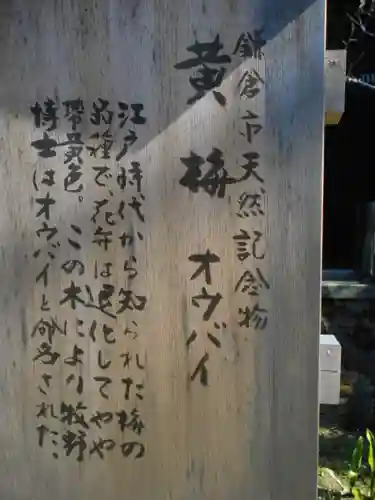 鎌倉市天然記念物
黄梅 オウバイ
江戸時代から知られた梅の
品種で、花弁は退化してやや
帯黄色。この木により牧野
博士はオウバイと命名された、